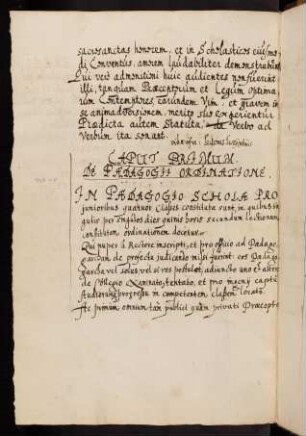 sacrosanctas honorem, et in Scholasticos eiusmo
di Conventus, amorem laudabiliter demonstrabunt
Qui vero admonitioni huic audientes non fuerint
illi, tanquam Praeceptorum et Legum optima
rum Contemptores, earundem Vim, et gravem in
se animadversionem, merito suo experientur
Praedicta autem Statuta, Verbo ad
Verbum ita sonant.
CAPUT PRIMUM.
DE PAEDAGOGII ORDINATIONE.
IN PAEDAGOGIO SCHOLA PRO
junioribus quatuor Classes constitutae sunt, in quibus sin
gulis per singulos dies quinis horis secundum Lectionum
ordinationem docetur.
Qui nuper à Rectore inscripti, et pro officio ad Paedago
garcham de profectu judicando missi fuerint: eos Paedago
garcha vel solus vel si res postulet, adiuncto uno et altero
de Collegio tentato, et pro ingenij captu
Studiorumq; progressu in competentem classem locato.
Ac primum omnium tam publici quàm privati Praecepto